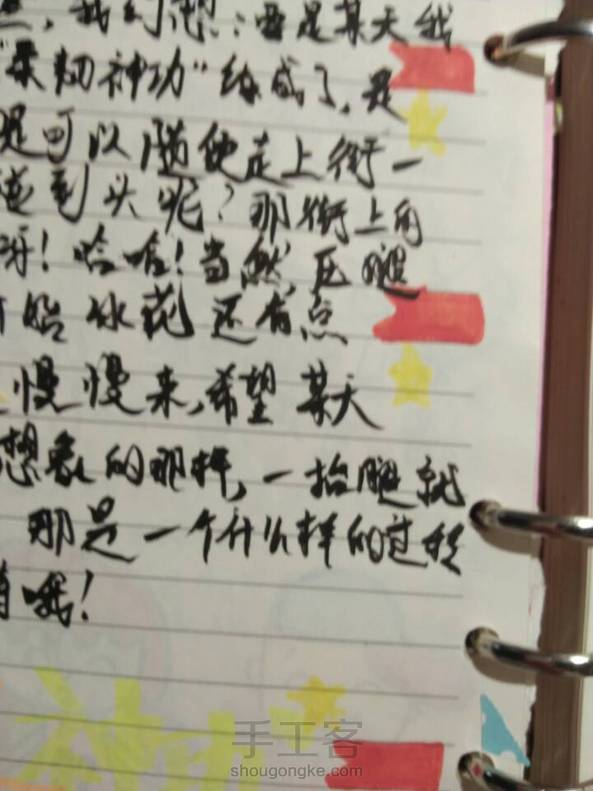 我幻想：要是某天我
"柔韧神功"练成了，是
是可以随便走上街一
碰到头呢？那街上的
呀！哈哈！当然，压腿
开始 还有点
慢慢来，希望某天
想象的那样，一抬腿就
那是一个什么样的过程
哦！
神功
手工客
shougongke.com